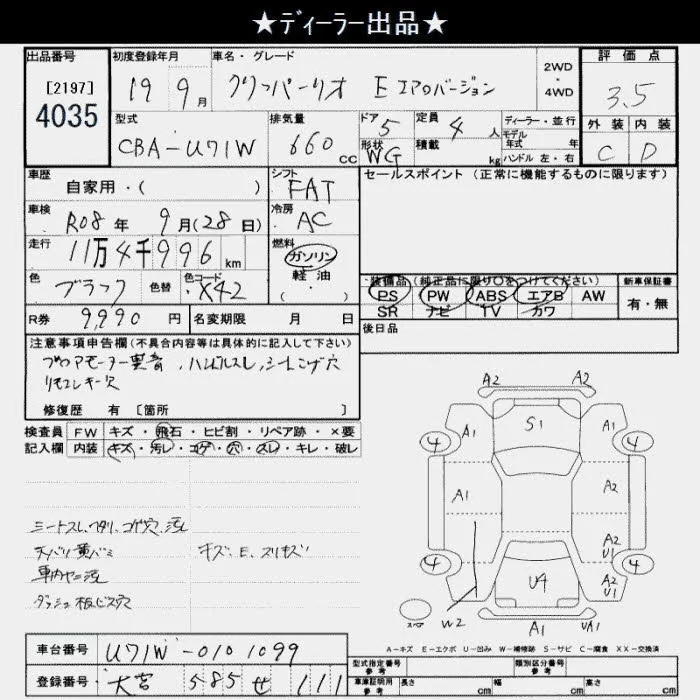 ★ディーラー出品★
出品番号 初度登録年月 車名・グレード 2WD・4WD 評価点
[2197]
4035
19 9月 クリッパーリオ E エアロバージョン 3.5
型式 排気量 ドア 5 定員 4人 ディーラー・並行 外装 内装
CBA-U71W 660cc 形状 WG 積載 kg モデル年式 年 ハンドル 左・右 C D
車歴 シフト セールスポイント (正常に機能するものに限ります)
自家用・( ) FAT
車検 R08年 9月(28日) 冷房 AC
走行 11万4千996km 燃料 ガソリン 軽油 ・( )
色 ブラック 色替 色コード X42
装備品 (純正品に限り○をつけてください) 新車保証書
PS PW ABS エアB AW 有・無
SR ナビ TV カワ
R券 9,990円 名変期限 月 日 後日品
注意事項申告欄(不具合内容等は具体的に記入して下さい)
ブロアモーター異音、ハンドルスレ、シートコゲ穴
リモコンキー欠
修復歴 有 [箇所 ]
検査員 FW キズ・飛石・ヒビ割・リペア跡・×要
記入欄 内装 キズ・汚レ・コゲ・穴・スレ・キレ・破レ
シートスレ、ヘタリ、コゲ穴、汚レ
天バリ黄バミ キズ、E、スリキズ
車内ヤニ汚
ダッシュ板ビス穴
A2 A2
A1 S1 A1
4 4
A1 A2
A2 U1
4 4
U4 A2 U1
スペア W2 A1 UA1
A-キズ E-エクボ U-凹み W-補修跡 S-サビ C-腐食 XX-交換済
車台番号 U71W-0101099
登録番号 大宮 585 せ 111
型式指定番号 参考 類別区分番号 参考
車庫証明用 参考 長さ cm 幅 cm 高さ cm